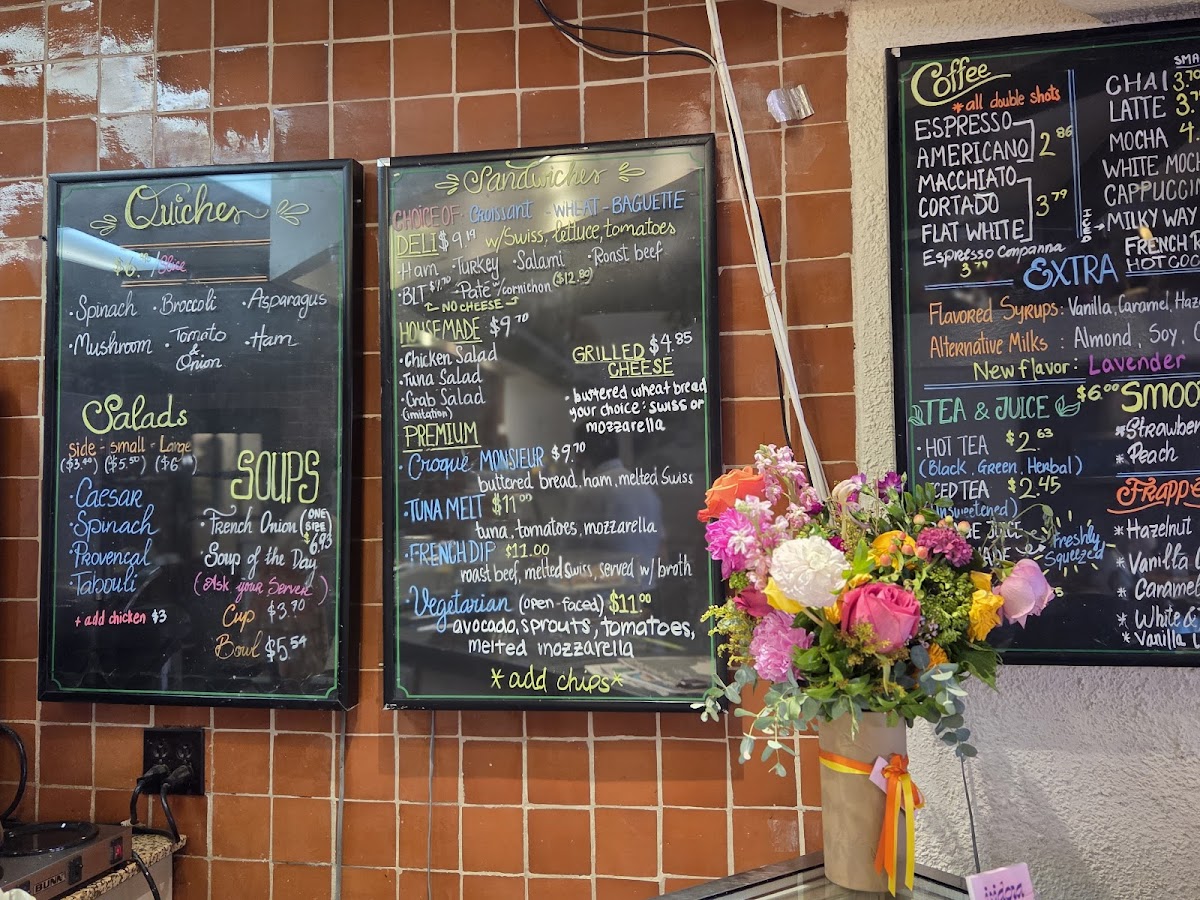 Quiches
/slice
• Spinach • Broccoli • Asparagus
• Mushroom • Tomato & Onion • Ham
Salads
side - small - Large
($3.40) ($5.50) ($6
• Caesar
• Spinach
• Provençal
• Tabouli
+ add chicken $3
SOUPS
• French Onion (ONE SIZE $6.93
• Soup of the Day
(Ask your Server)
Cup $3.70
Bowl $5.54
Sandwiches
CHOICE OF • Croissant - WHEAT - BAGUETTE
DELI $9.19 w/Swiss, lettuce, tomatoes
• Ham • Turkey • Salami • Roast beef
• BLT • Paté w/cornichon ($12.89)
NO CHEESE
HOUSEMADE $9.70
• Chicken Salad
• Tuna Salad
• Crab Salad
(imitation)
GRILLED $4.85
CHEESE
• buttered wheat bread
your choice: swiss or
mozzarella
PREMIUM
• Croque MONSIEUR $9.70
buttered bread, ham, melted Swiss
• TUNA MELT $11.00
tuna, tomatoes, mozzarella
• FRENCH DIP $11.00
roast beef, melted Swiss, served w/ broth
• Vegetarian (open-faced) $11.00
avocado, sprouts, tomatoes,
melted mozzarella
*add chips*
Coffee
*all double shots
ESPRESSO
AMERICANO 2.86
MACCHIATO
CORTADO 3.79
FLAT WHITE
Espresso Companna
3.79
SMA
CHAI 3.70
LATTE 3.7
MOCHA 4.
WHITE MOC
CAPPUCCIN
MILKY WAY
FRENCH
HOT COC
EXTRA
Flavored Syrups: Vanilla, Caramel, Haz
Alternative Milks : Almond, Soy,
New flavor: Lavender
TEA & JUICE
• HOT TEA $2.63
(Black, Green, Herbal)
ICED TEA $2.45
unsweetened)
JUICE
Freshly
Squeezed
$6.00 SMOO
*Strawber
* Peach
Frappé
*Hazelnut
*Vanilla
Carame
* White &
* Vanilla
BUNN